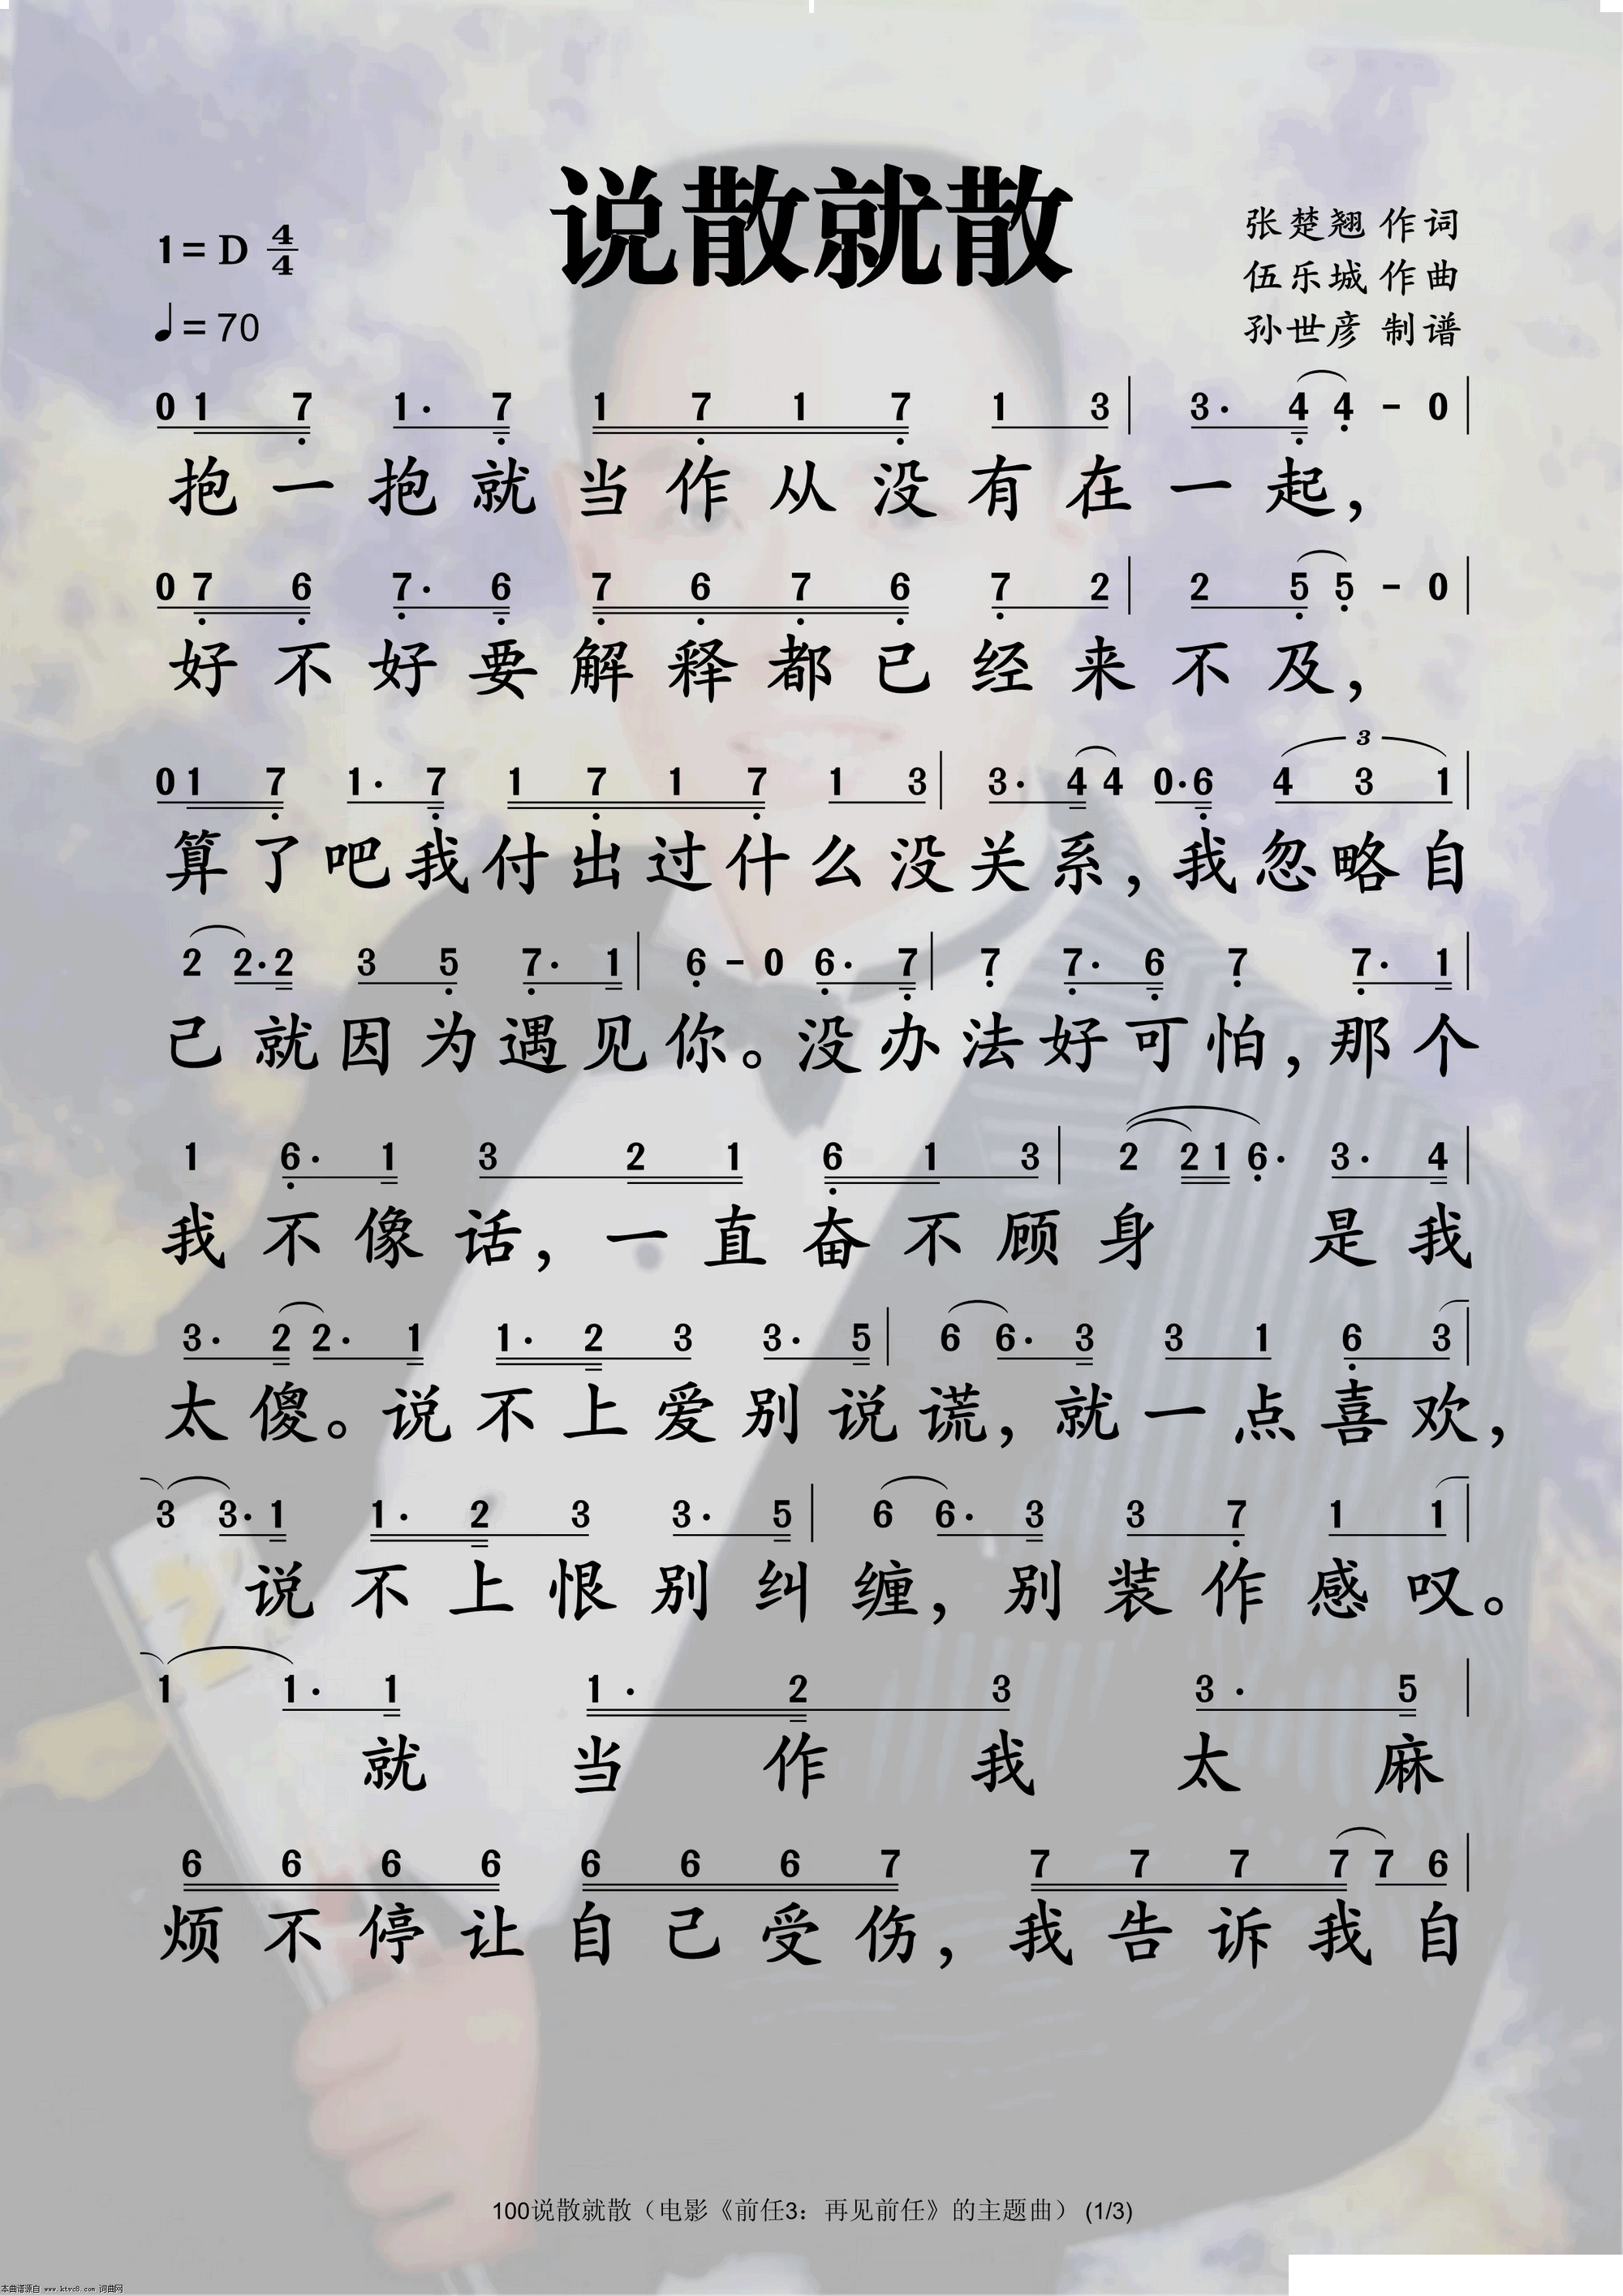 说散就散
1=D 4/4
♩=70
张楚翘 作词
伍乐城 作曲
孙世彦 制谱
0 1 7 1· 7 1 7 1 7 1 3 | 3· 4 4 - 0 |
抱一抱就当作从没有在一起，
0 7 6 7· 6 7 6 7 6 7 2 | 2 5 5 - 0 |
好不好要解释都已经来不及，
0 1 7 1· 7 1 7 1 7 1 3 | 3· 4 4 0· 6 4 3 1 |
3
算了吧我付出过什么没关系，我忽略自
2 2· 2 3 5 7· 1 | 6 - 0 6· 7 | 7 7· 6 7 7· 1 |
己就因为遇见你。没办法好可怕，那个
1 6· 1 3 2 1 6 1 3 | 2 2 1 6· 3· 4 |
我不像话，一直奋不顾身 是我
3· 2 2· 1 1· 2 3 3· 5 | 6 6· 3 3 1 6 3 |
太傻。说不上爱别说谎，就一点喜欢，
3 3· 1 1· 2 3 3· 5 | 6 6· 3 3 7 1 1 |
说不上恨别纠缠，别装作感叹。
1 1· 1 1· 2 3 3· 5 |
就当作我太麻
6 6 6 6 6 6 6 7 7 7 7 7 7 6 |
烦不停让自己受伤，我告诉我自
100说散就散（电影《前任3：再见前任》的主题曲） (1/3)
本曲谱源自 www.ktvc8.com 词曲网